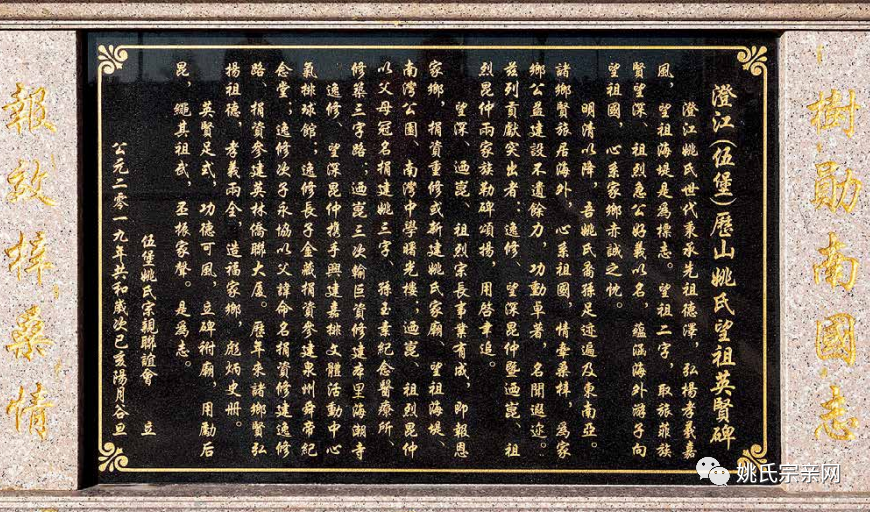 樹勛南國志
澄江（伍堡）歷山姚氏望祖英賢碑
澄江姚氏世代秉承先祖德澤，弘揚孝義嘉
風，望祖海堤是為標志。望祖二字，取旅菲族
賢望深、祖烈急公好義以名，蘊涵海外游子向
望祖國，心系家鄉赤誠之忱。
明清以降，吾姚氏裔孫足迹遍及東南亞。
諸鄉賢旅居海外，心系祖國，情牽桑梓，為家
鄉公益建設不遺餘力，功勳卓著，名聞遐迩。
茲列貢獻突出者：遠修、望深昆仲暨迺崑、祖
烈昆仲兩家族勒碑頌揚，用啓聿追。
望深、迺崑、祖烈宗長事業有成，即報恩
家鄉，捐資重修或新建姚氏家廟、望祖海堤、
南灣公園、南灣中學曙光樓；迺崑、祖烈昆仲
以父母冠名捐建姚三字、孫玉素紀念醫療所、
修築三字路；迺崑三次輸巨資修建本里海潮寺
遠修、望深昆仲携手興建嘉排文體活動中心
氣排球館；遠修長子金藏捐資參建泉州舜帝紀
念堂；遠修次子永協以父諱命名捐資修建遠修
路、捐資參建英林僑聯大廈。歷年來諸鄉賢弘
揚祖德，孝義兩全，造福家鄉，彪炳史冊。
英賢足式，功德可風，立碑祔廟，用勵后
昆，繩其祖武，丕振家聲。是為志。
伍堡姚氏宗親聯誼會 立
公元二零一九年共和歲次己亥陽月谷旦
報效梓桑情
姚氏宗亲网